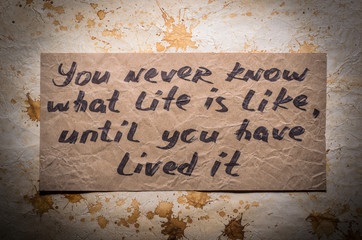 You never know
what life is like,
until you have
lived it